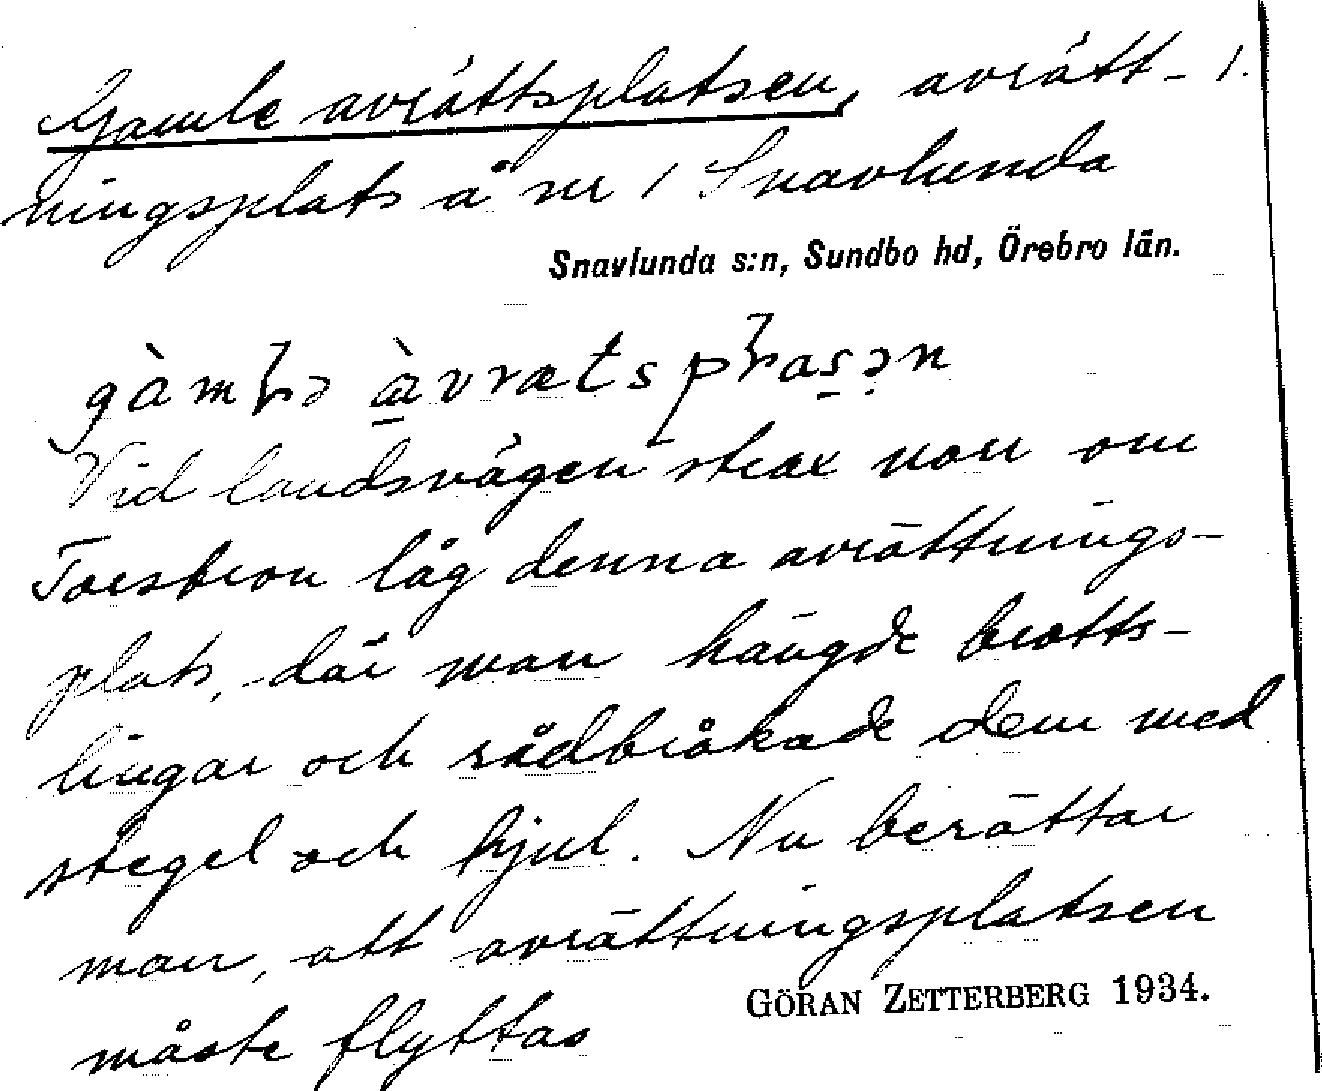 Gamle avrättsplatsen, avrätt- 1.
ningsplats å nr 1 Snavlunda
Snavlunda s:n, Sundbo hd, Örebro län.
Vid landsvägen strax norr om
Torsbron låg denna avrättnings-
plats, där man hängde brotts-
lingar och rådbråkade dem med
stegel och hjul. Nu berättar
man, att avrättningsplatsen
måste flyttas
GÖRAN ZETTERBERG 1934.